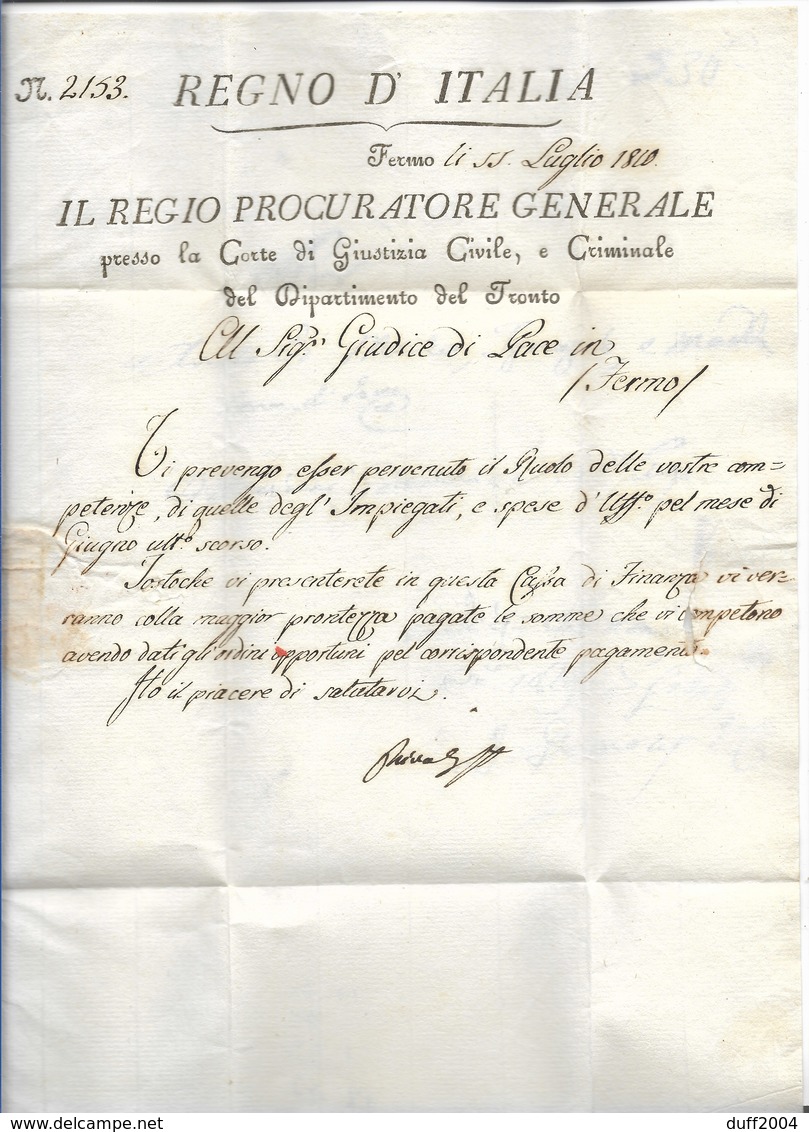 N. 2153. REGNO D' ITALIA
Fermo li 11. Luglio 1810.
IL REGIO PROCURATORE GENERALE
presso la Corte di Giustizia Civile, e Criminale
del Dipartimento del Tronto
Al Sigr. Giudice di Pace in
/Fermo/
Vi prevengo esser pervenuto il Ruolo delle vostre com=
petenze, di quelle degl' Impiegati, e spese d' Uffo. pel mese di
Giugno ulto. scorso.
Tostoche vi presenterete in questa Cassa di Finanza vi ver=
ranno colla maggior prontezza pagate le somme che vi competono
avendo dati gli ordini opportuni pel corrispondente pagamento.
Ho il piacere di salutarvi.
delcampe.net
duff2004